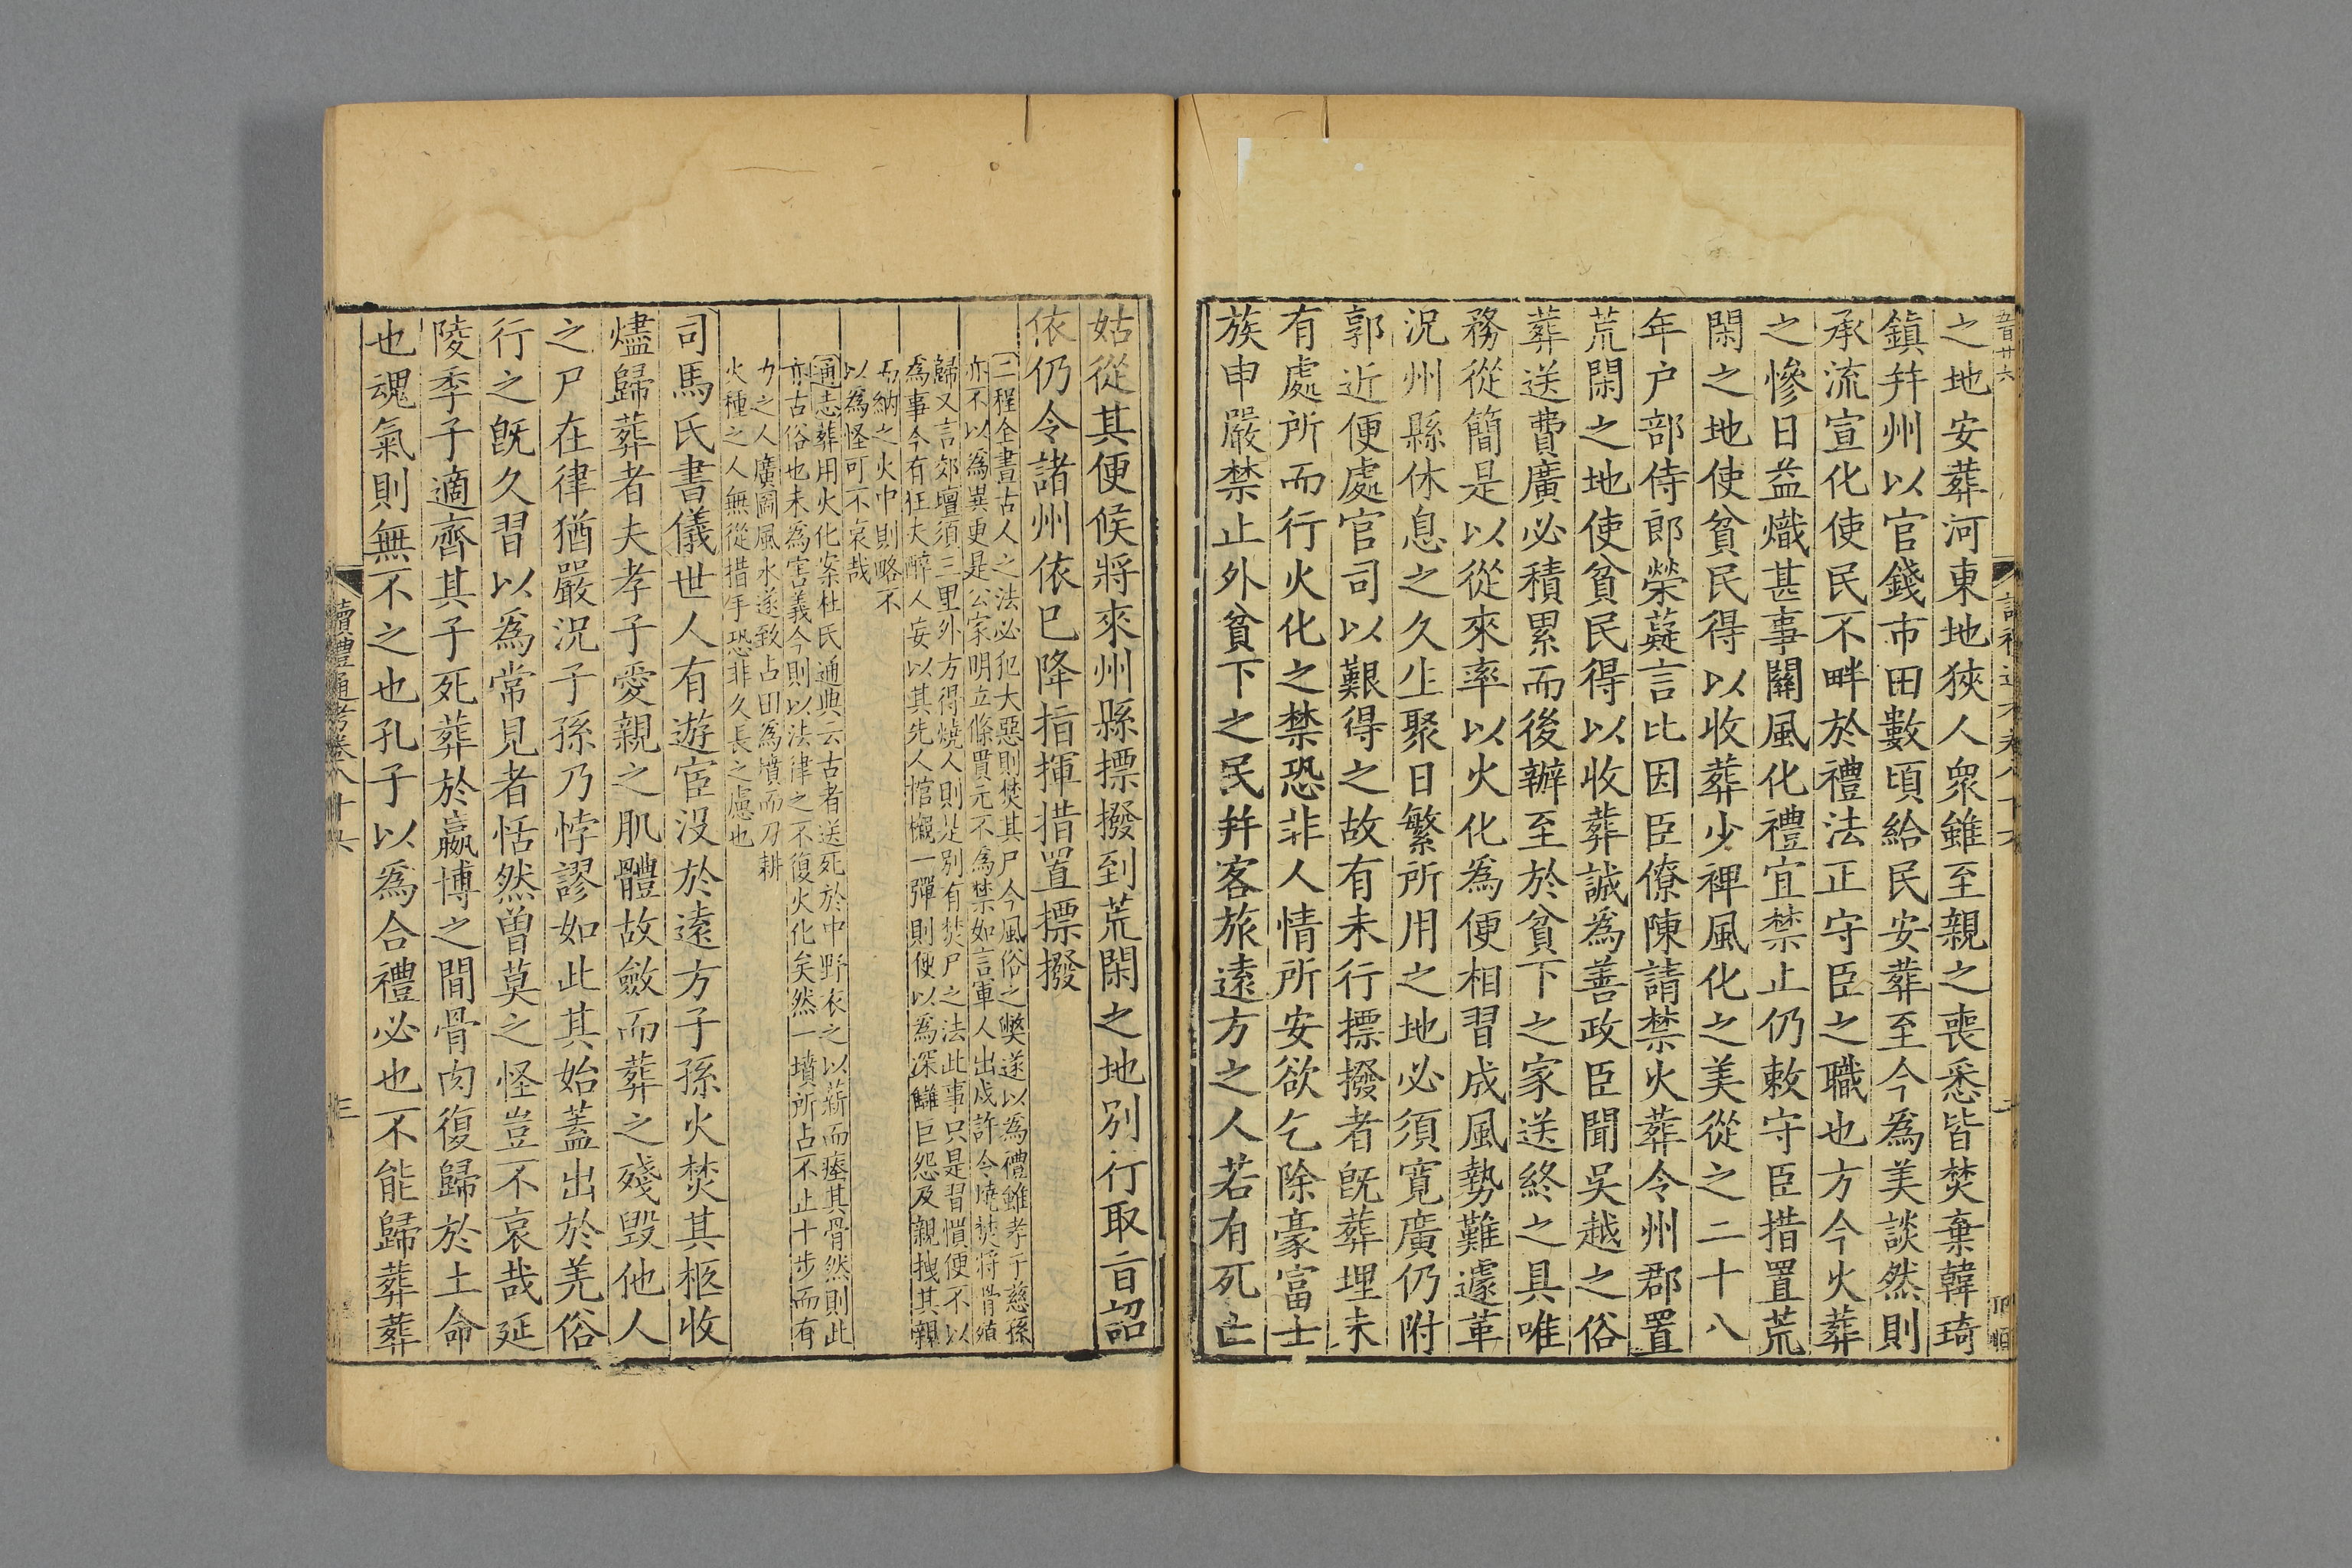 五百廿六
之地安葬河東地狹人衆雖至親之喪悉皆焚棄韓琦
鎮幷州以官錢市田數頃給民安葬至今爲美談然則
承流宣化使民不畔於禮法正守臣之職也方今火葬
之慘日益熾甚事關風化禮宜禁止仍敕守臣措置荒
閑之地使貧民得以收葬少裨風化之美從之二十八
年户部侍郎榮薿言比因臣僚陳請禁火葬令州郡置
荒閑之地使貧民得以收葬誠爲善政臣聞吳越之俗
葬送費廣必積累而後辦至於貧下之家送終之具唯
務從簡是以從來率以火化爲便相習成風勢難遽革
況州縣休息之久生聚日繁所用之地必須寬廣仍附
郭近便處官司以艱得之故有未行摽撥者旣葬埋未
有處所而行火化之禁恐非人情所安欲乞除豪富士
族申嚴禁止外貧下之民幷客旅遠方之人若有死亡
姑從其便候將來州縣摽撥到荒閑之地别行取旨詔
依仍令諸州依已降指揮措置摽撥
二程全書古人之法必犯大惡則焚其尸今風俗之弊遂以爲禮雖孝子慈孫
亦不以爲異更是公家明立條貫元不爲禁如言軍人出戍許令燒焚將骨殖
歸又言郊壇須三里外方得燒人則是别有焚尸之法此事只是習慣便不以
爲事今有狂夫醉人妄以其先人棺櫬一彈則便以爲深讎巨怨及親拽其親
而納之火中則略不
以爲怪可不哀哉
通志葬用火化案杜氏通典云古者送死於中野衣之以薪而瘞其骨然則此
亦古俗也未爲害義今則以法律之不復火化矣然一墳所占不止十步而有
力之人廣圖風水遂致占田爲墳而刀耕
火種之人無從措手恐非久長之慮也
司馬氏書儀世人有遊宦没於遠方子孫火焚其柩收
燼歸葬者夫孝子愛親之肌體故斂而葬之殘毁他人
之尸在律猶嚴況子孫乃悖謬如此其始蓋出於羌俗
行之旣久習以爲常見者恬然曾莫之怪豈不哀哉延
陵季子適齊其子死葬於嬴博之間骨肉復歸於土命
也魂氣則無不之也孔子以爲合禮必也不能歸葬葬
讀禮通考卷八十六
三